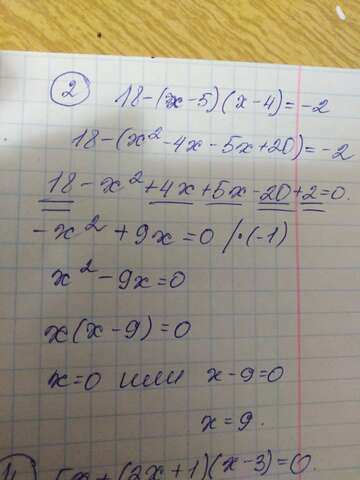 2 18-(x-5)(x-4)=-2
18-(x²-4x-5x+20)=-2
18-x²+4x+5x-20+2=0.
-x²+9x=0 /·(-1)
x²-9x=0
x(x-9)=0
x=0 или x-9=0
x=9.
x+(2x+1)(x-3)=0.